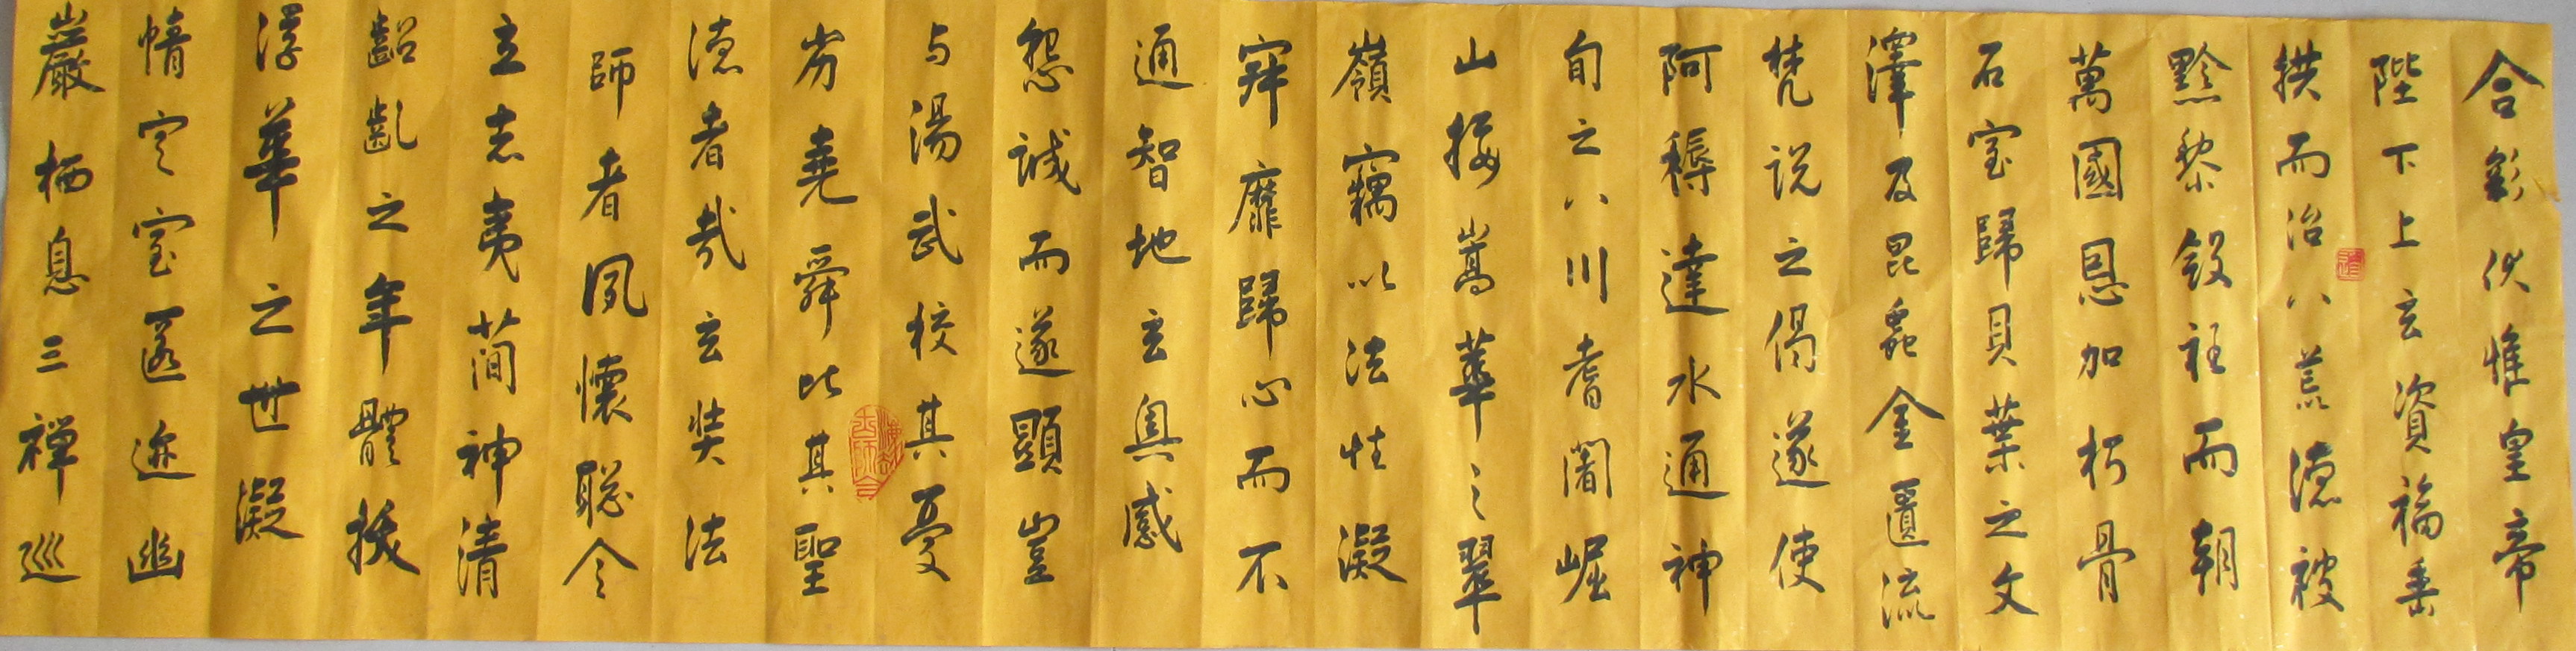 合彩伏惟皇帝
陛下上玄資福垂
拱而治八荒德被
黔黎斂衽而朝
萬國恩加朽骨
石室歸貝葉之文
澤及昆蟲金匱流
梵說之偈遂使
阿耨達水通神
旬之八川耆闍崛
山接嵩華之翠
嶺竊以法性凝
寂靡歸心而不
通智地玄奧感
懇誠而遂顯豈
与湯武校其憂
劣堯舜比其聖
德者哉玄奘法
師者夙懷聡令
立志夷蕳神清
齠齔之年體拔
浮華之世凝
情定室匿迹幽
巖栖息三禅巡